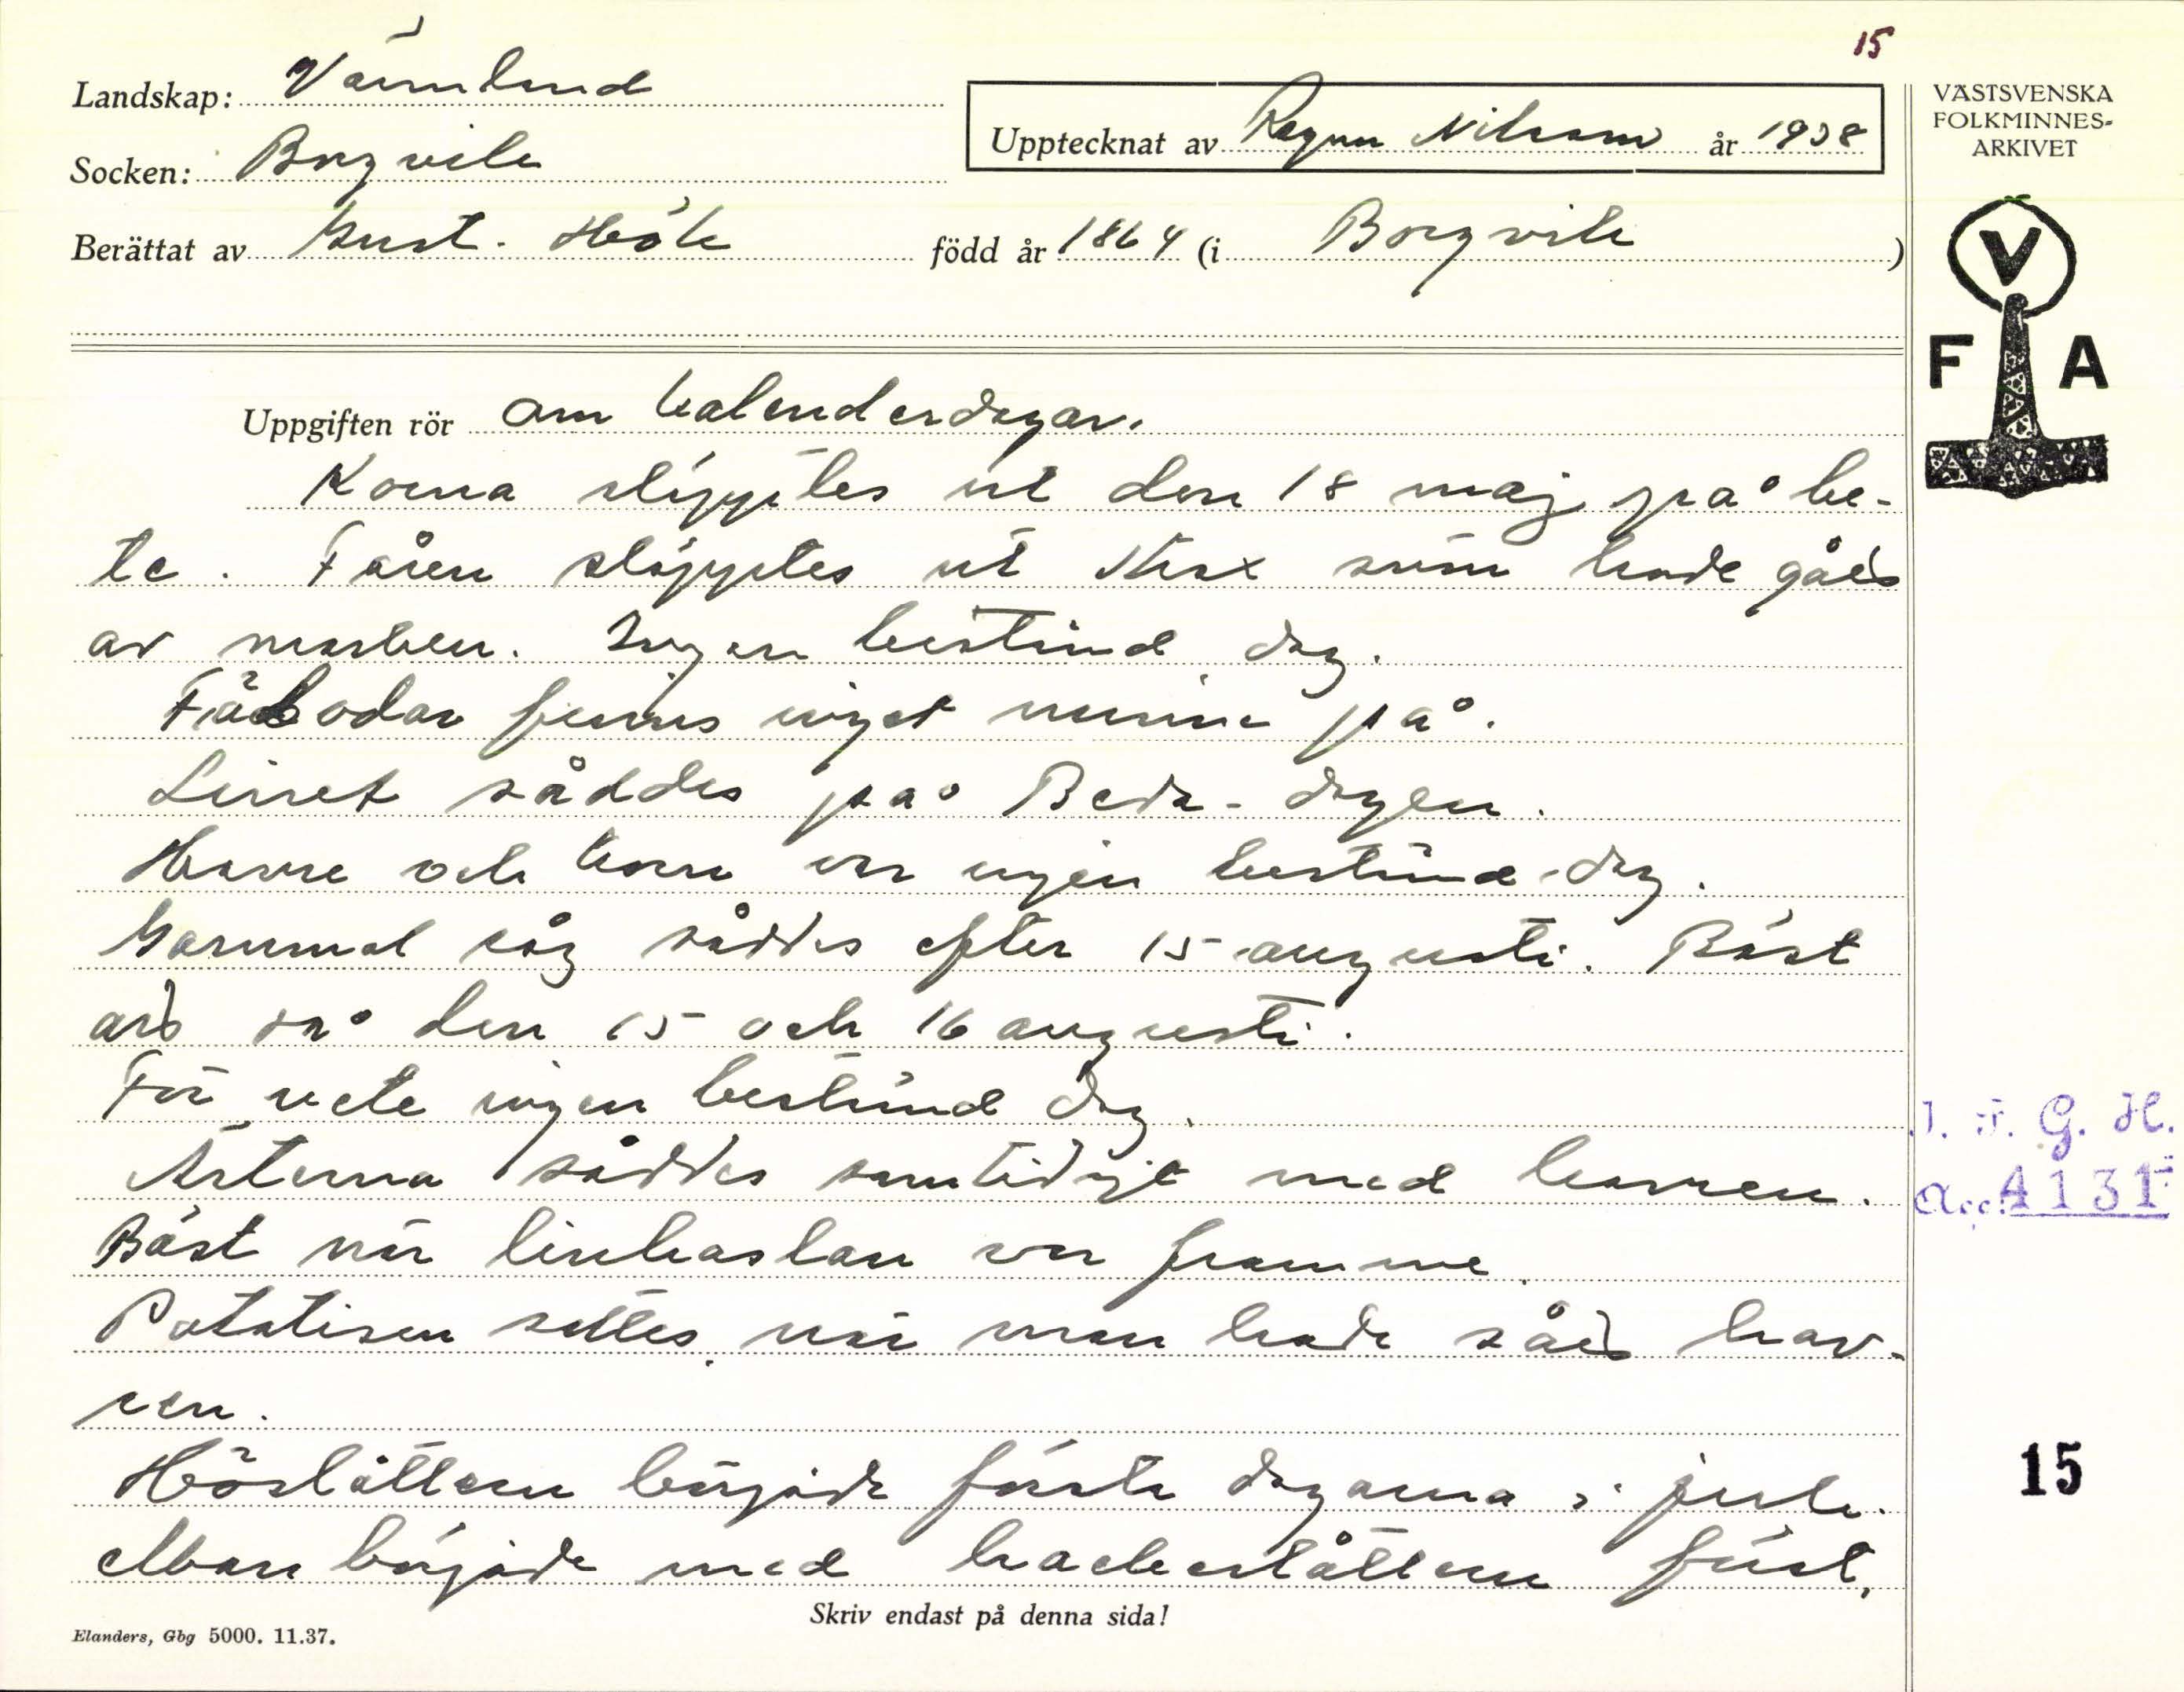 15
Landskap: Värmland
Upptecknat av Ragnar Nilsson år 1938
Socken: Borgvik
Berättat av Gust. Hök född år 1864 (i Borgvik)
VÄSTSVENSKA
FOLKMINNES-
ARKIVET
V
F A
Uppgiften rör om kalenderdagar.
Korna släpptes ut den 18 maj på be-
te. Fåren släpptes ut strax snön hade gått
av marken. Ingen bestämd dag.
Fäbodar finns inget minne på.
Linet såddes på Beda-dagen.
Havre och korn var ingen bestämd dag.
Gammal råg såddes efter 15 augusti. Bäst
att så den 15 och 16 augusti.
För vete ingen bestämd dag.
Ärterna såddes samtidigt med havren.
Bäst när linharslan var framme.
Potatisen sattes när man hade sått hav-
ren.
Höslåttern började första dagarna i juli.
Man började med hackeslåttern först,
I. F. G. H.
Acc. 4131
15
Skriv endast på denna sida!
Elanders, Gbg 5000. 11.37.